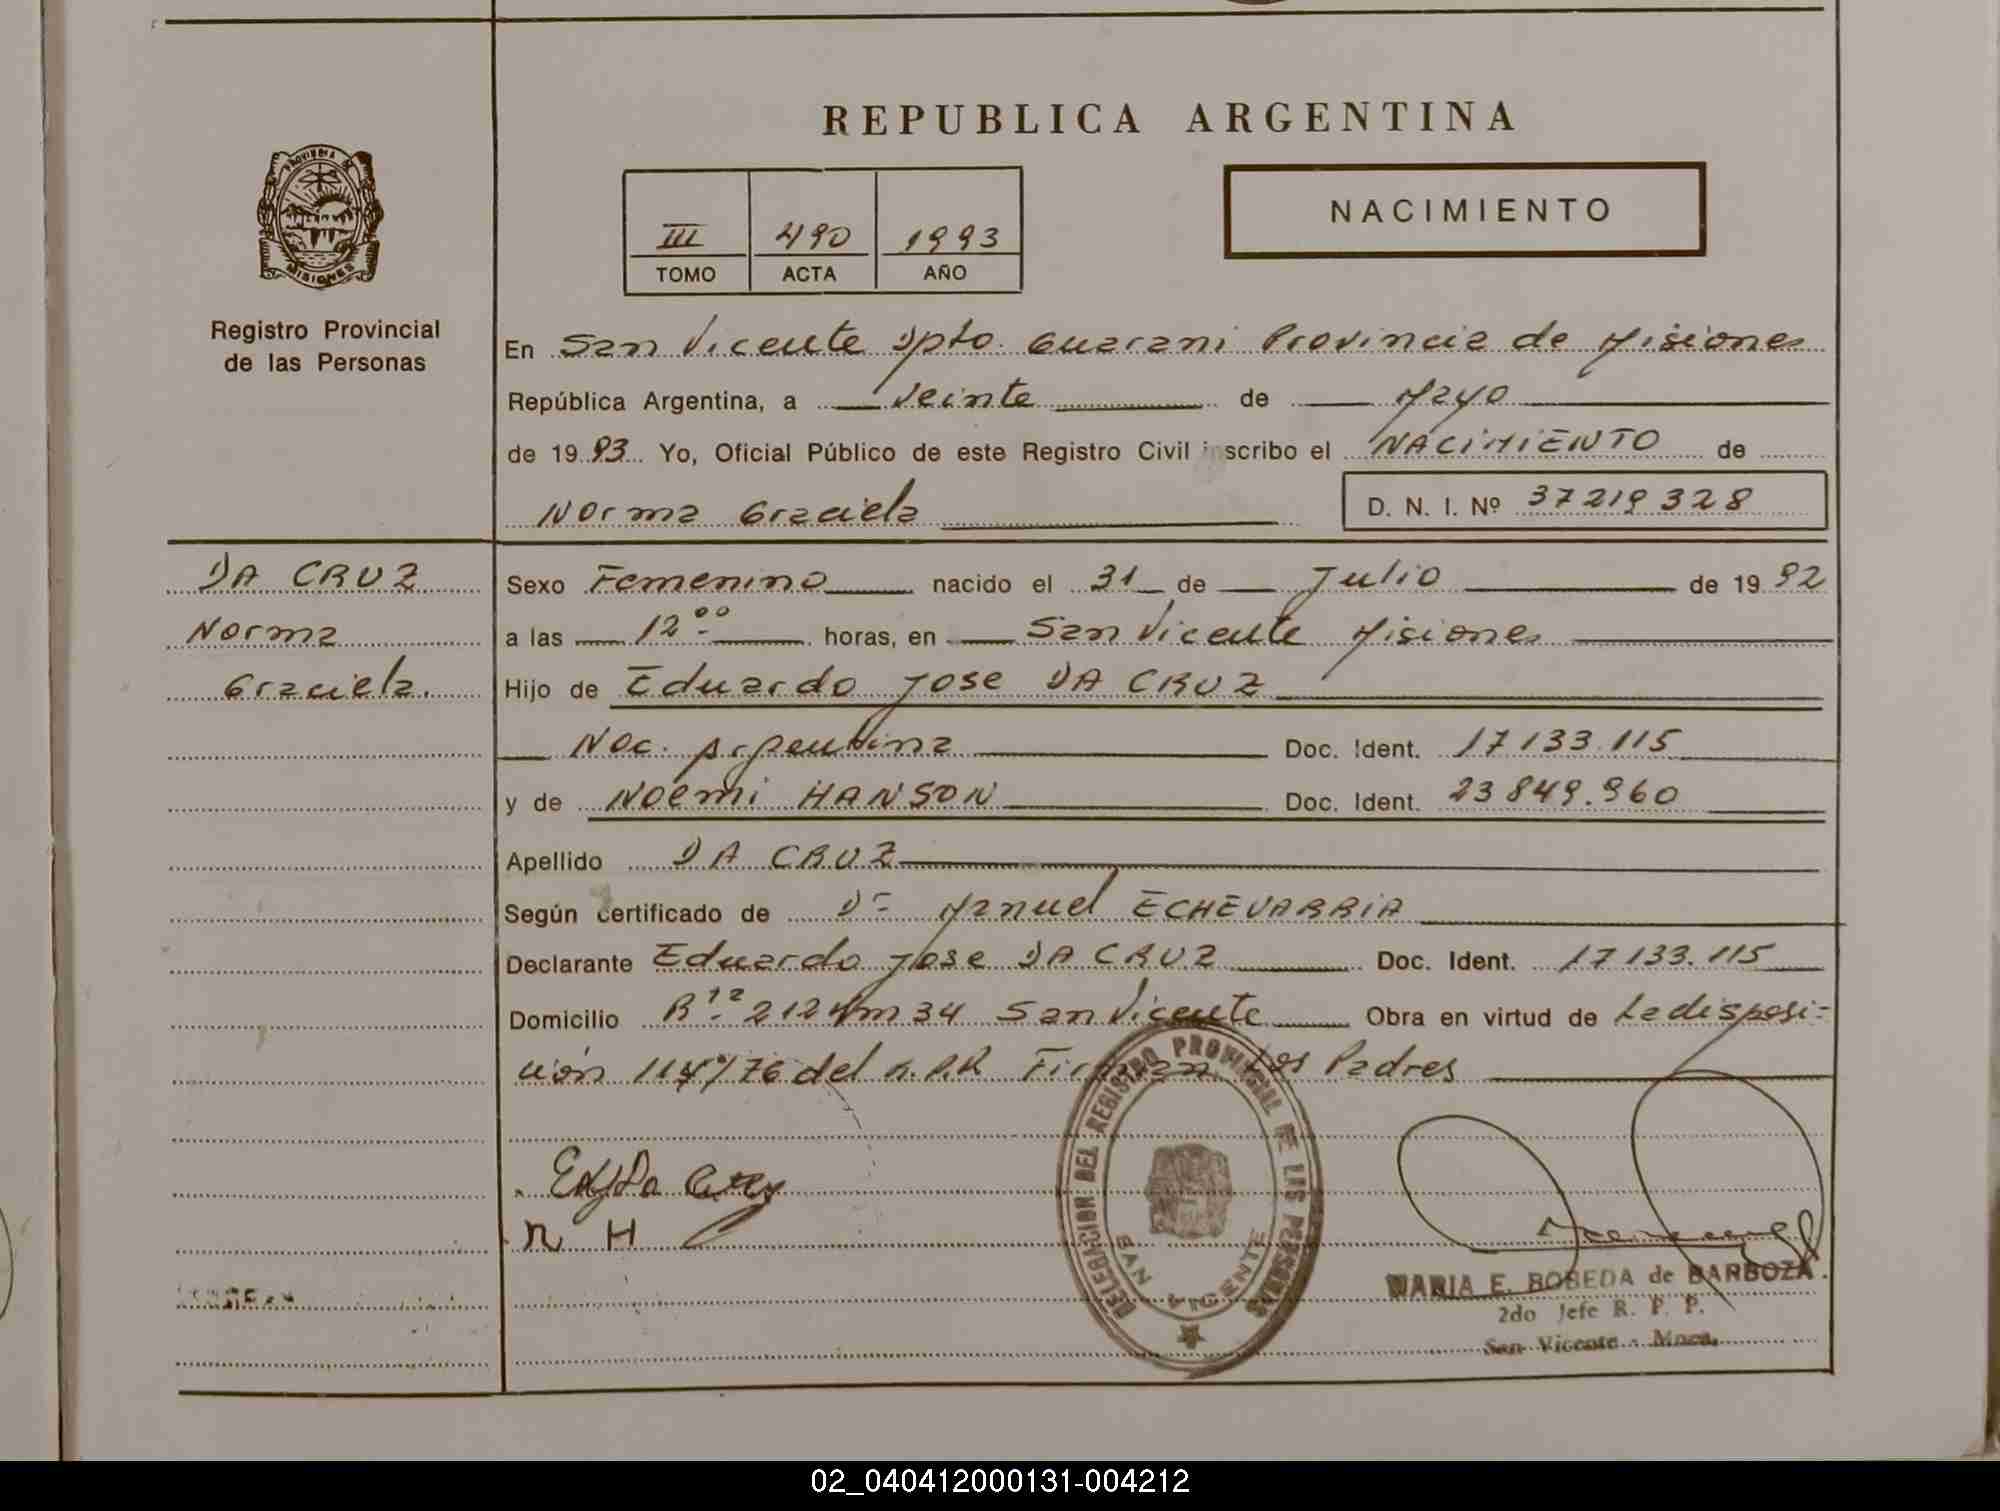 REPUBLICA ARGENTINA
PROVINCIA DE
MISIONES
Registro Provincial
de las Personas
III 490 1993
TOMO ACTA AÑO
NACIMIENTO
En San Vicente Dpto. Guarani Provincia de Misiones
República Argentina, a Veinte de Mayo
de 1993 Yo, Oficial Público de este Registro Civil inscribo el NACIMIENTO de
Norma Graciela D. N. I. Nº 37219328
DA CRUZ
Norma
Graciela.
Sexo Femenino nacido el 31 de Julio de 1992
a las 12 00 horas, en San Vicente Misiones
Hijo de Eduardo Jose DA CRUZ
Nac. Argentina Doc. Ident. 17133.115
y de Noemi HANSON Doc. Ident. 23849.960
Apellido DA CRUZ
Según certificado de Dr Manuel ECHEVARRIA
Declarante Eduardo Jose DA CRUZ Doc. Ident. 17133.115
Domicilio 212 Km 34 San Vicente Obra en virtud de La disposi-
ción 114/76 del R.P.P. Firman Los Padres
N H
DELEGACION DEL REGISTRO PROVINCIAL DE LAS PERSONAS
SAN VICENTE
MARIA E. BOBEDA de BARBOZA
2do Jefe R. P. P.
San Vicente - Mnes.
02_040412000131-004212